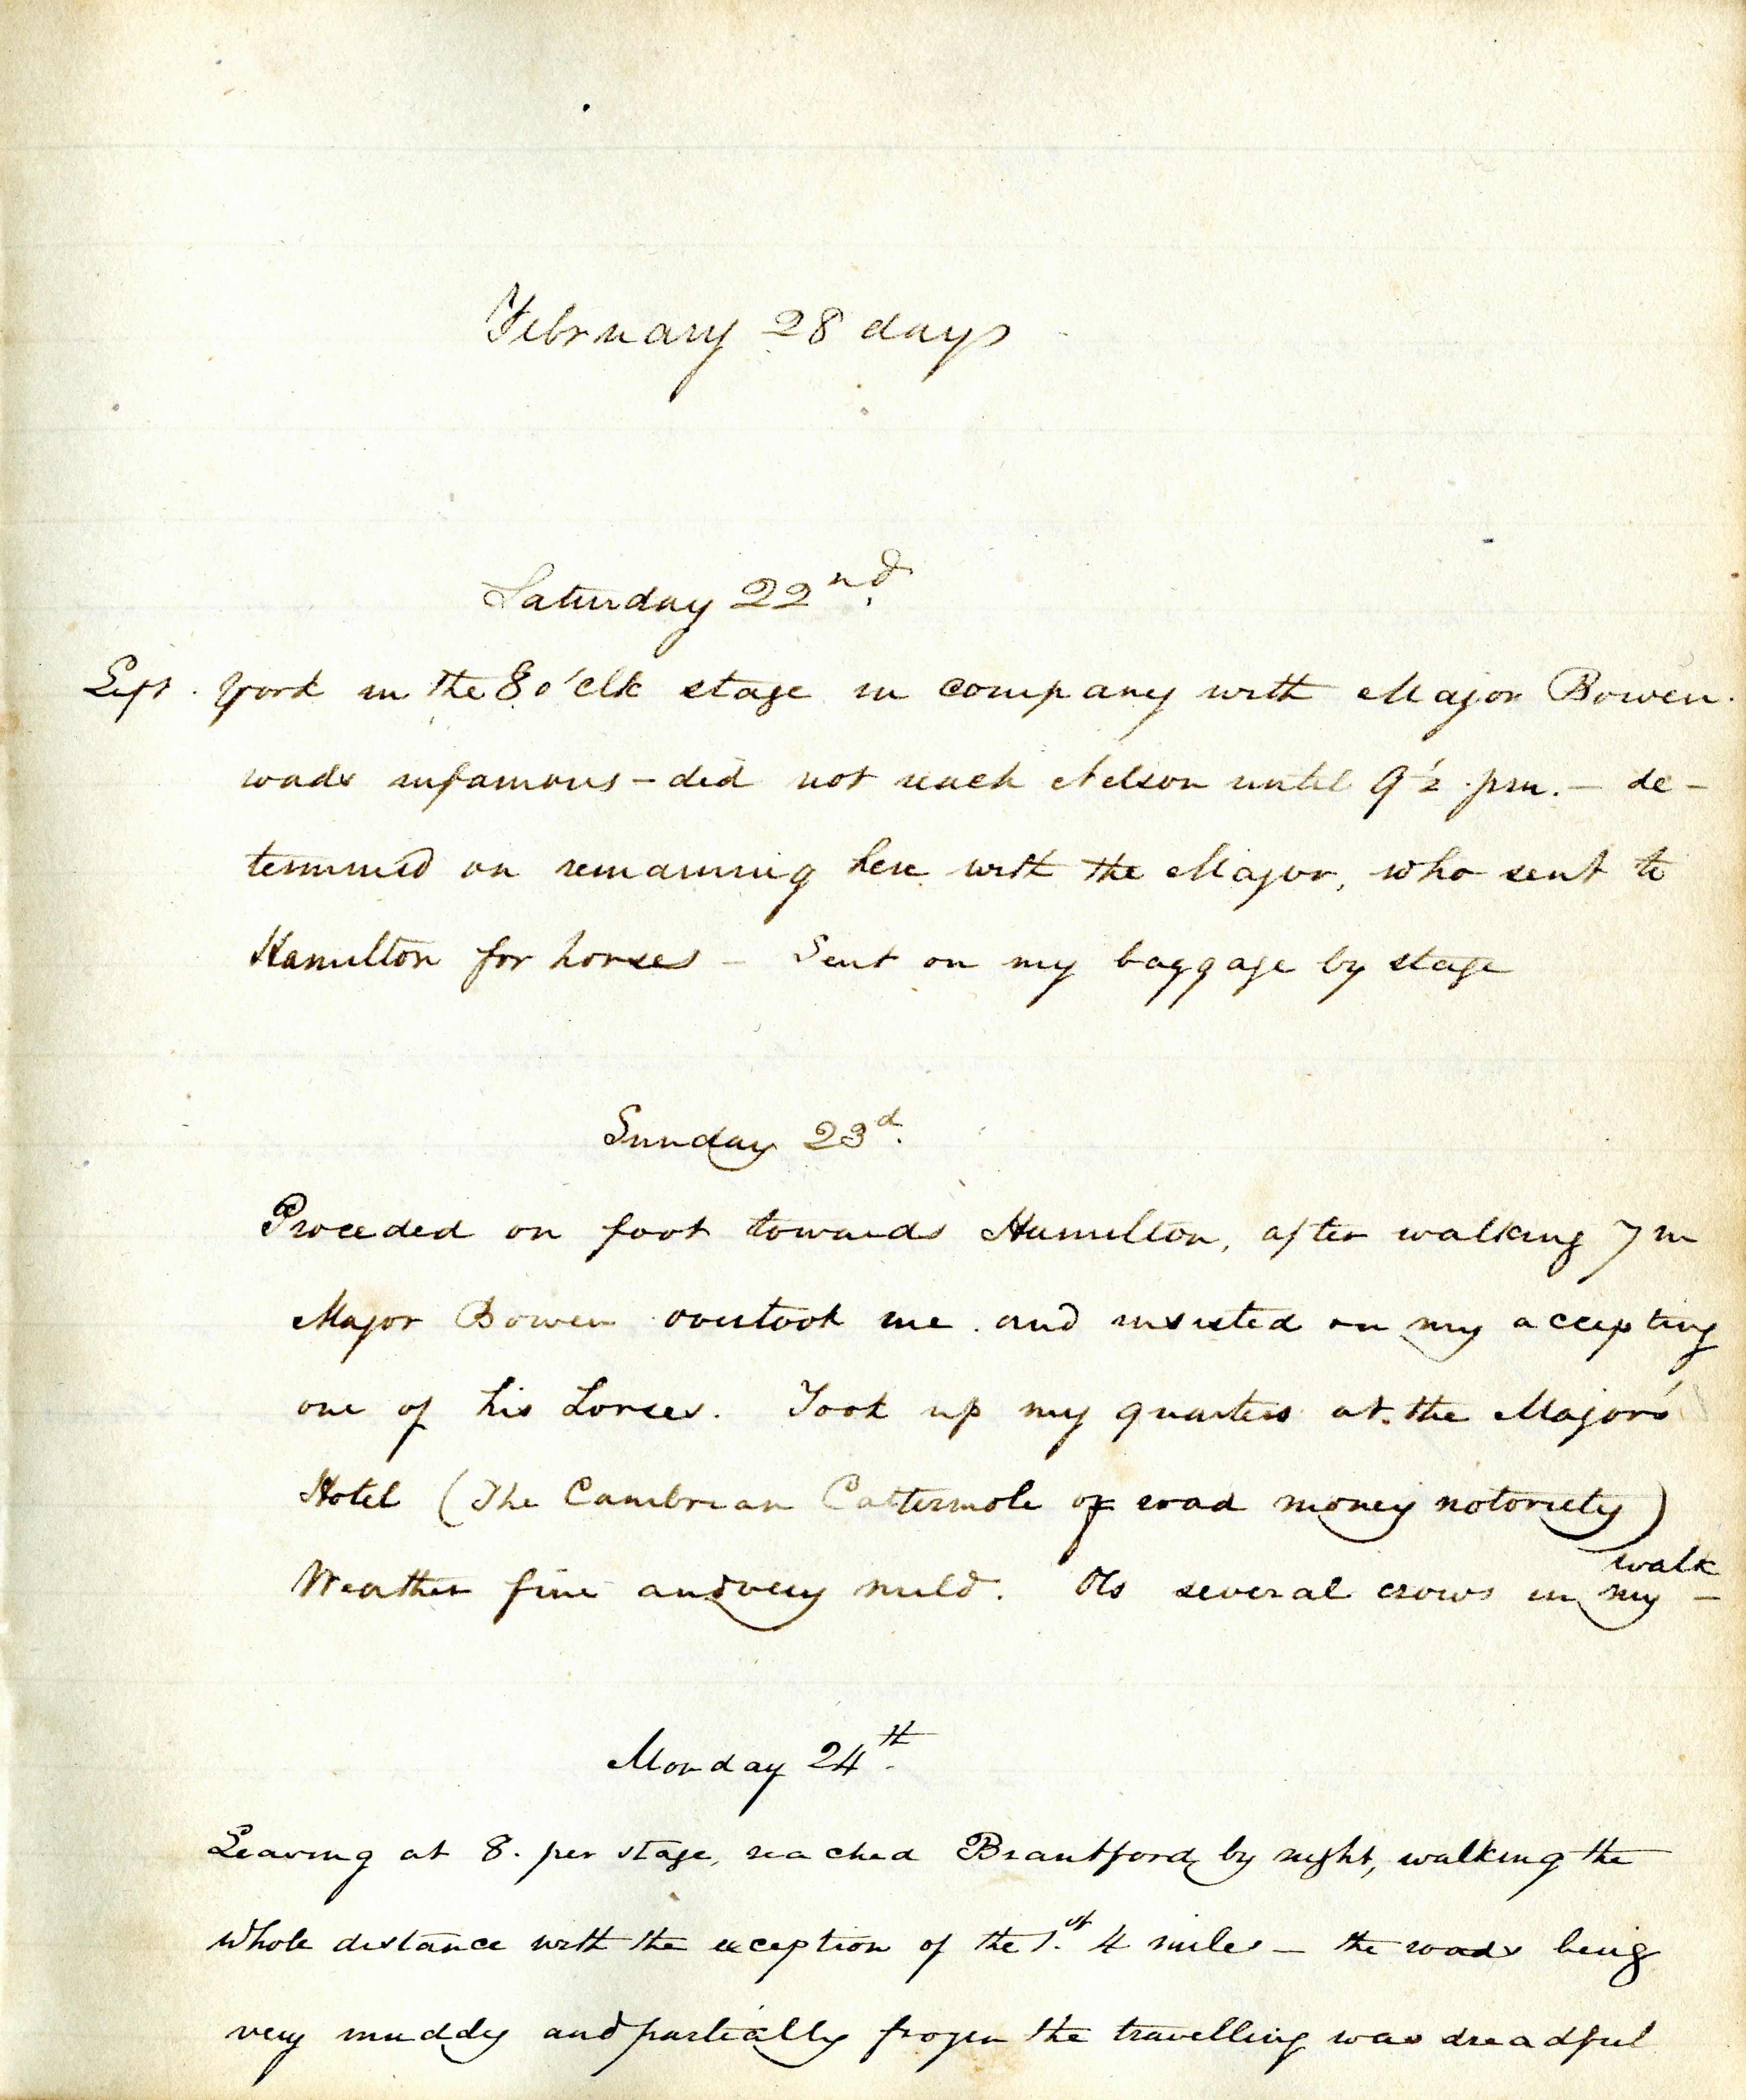 February 28 days
Saturday 22nd.
Left York in the 8 o'clk stage in company with Major Bowen.
roads infamous - did not reach Nelson until 9½ pm. - de-
termined on remaining here with the Major, who sent to
Hamilton for horses - Sent on my baggage by stage
Sunday 23d.
Proceded on foot towards Hamilton, after walking 7 m
Major Bowen overtook me and insisted on my accepting
one of his horses. Took up my quarters at the Major's
Hotel (The Cambrian Cattermole of road money notoriety)
walk
Weather fine and very mild. Ob several crows in my -
Monday 24th.
Leaving at 8. per stage, reached Brantford by night, walking the
whole distance with the exception of the 1st. 4 miles - the roads being
very muddy and partially frozen the travelling was dreadful